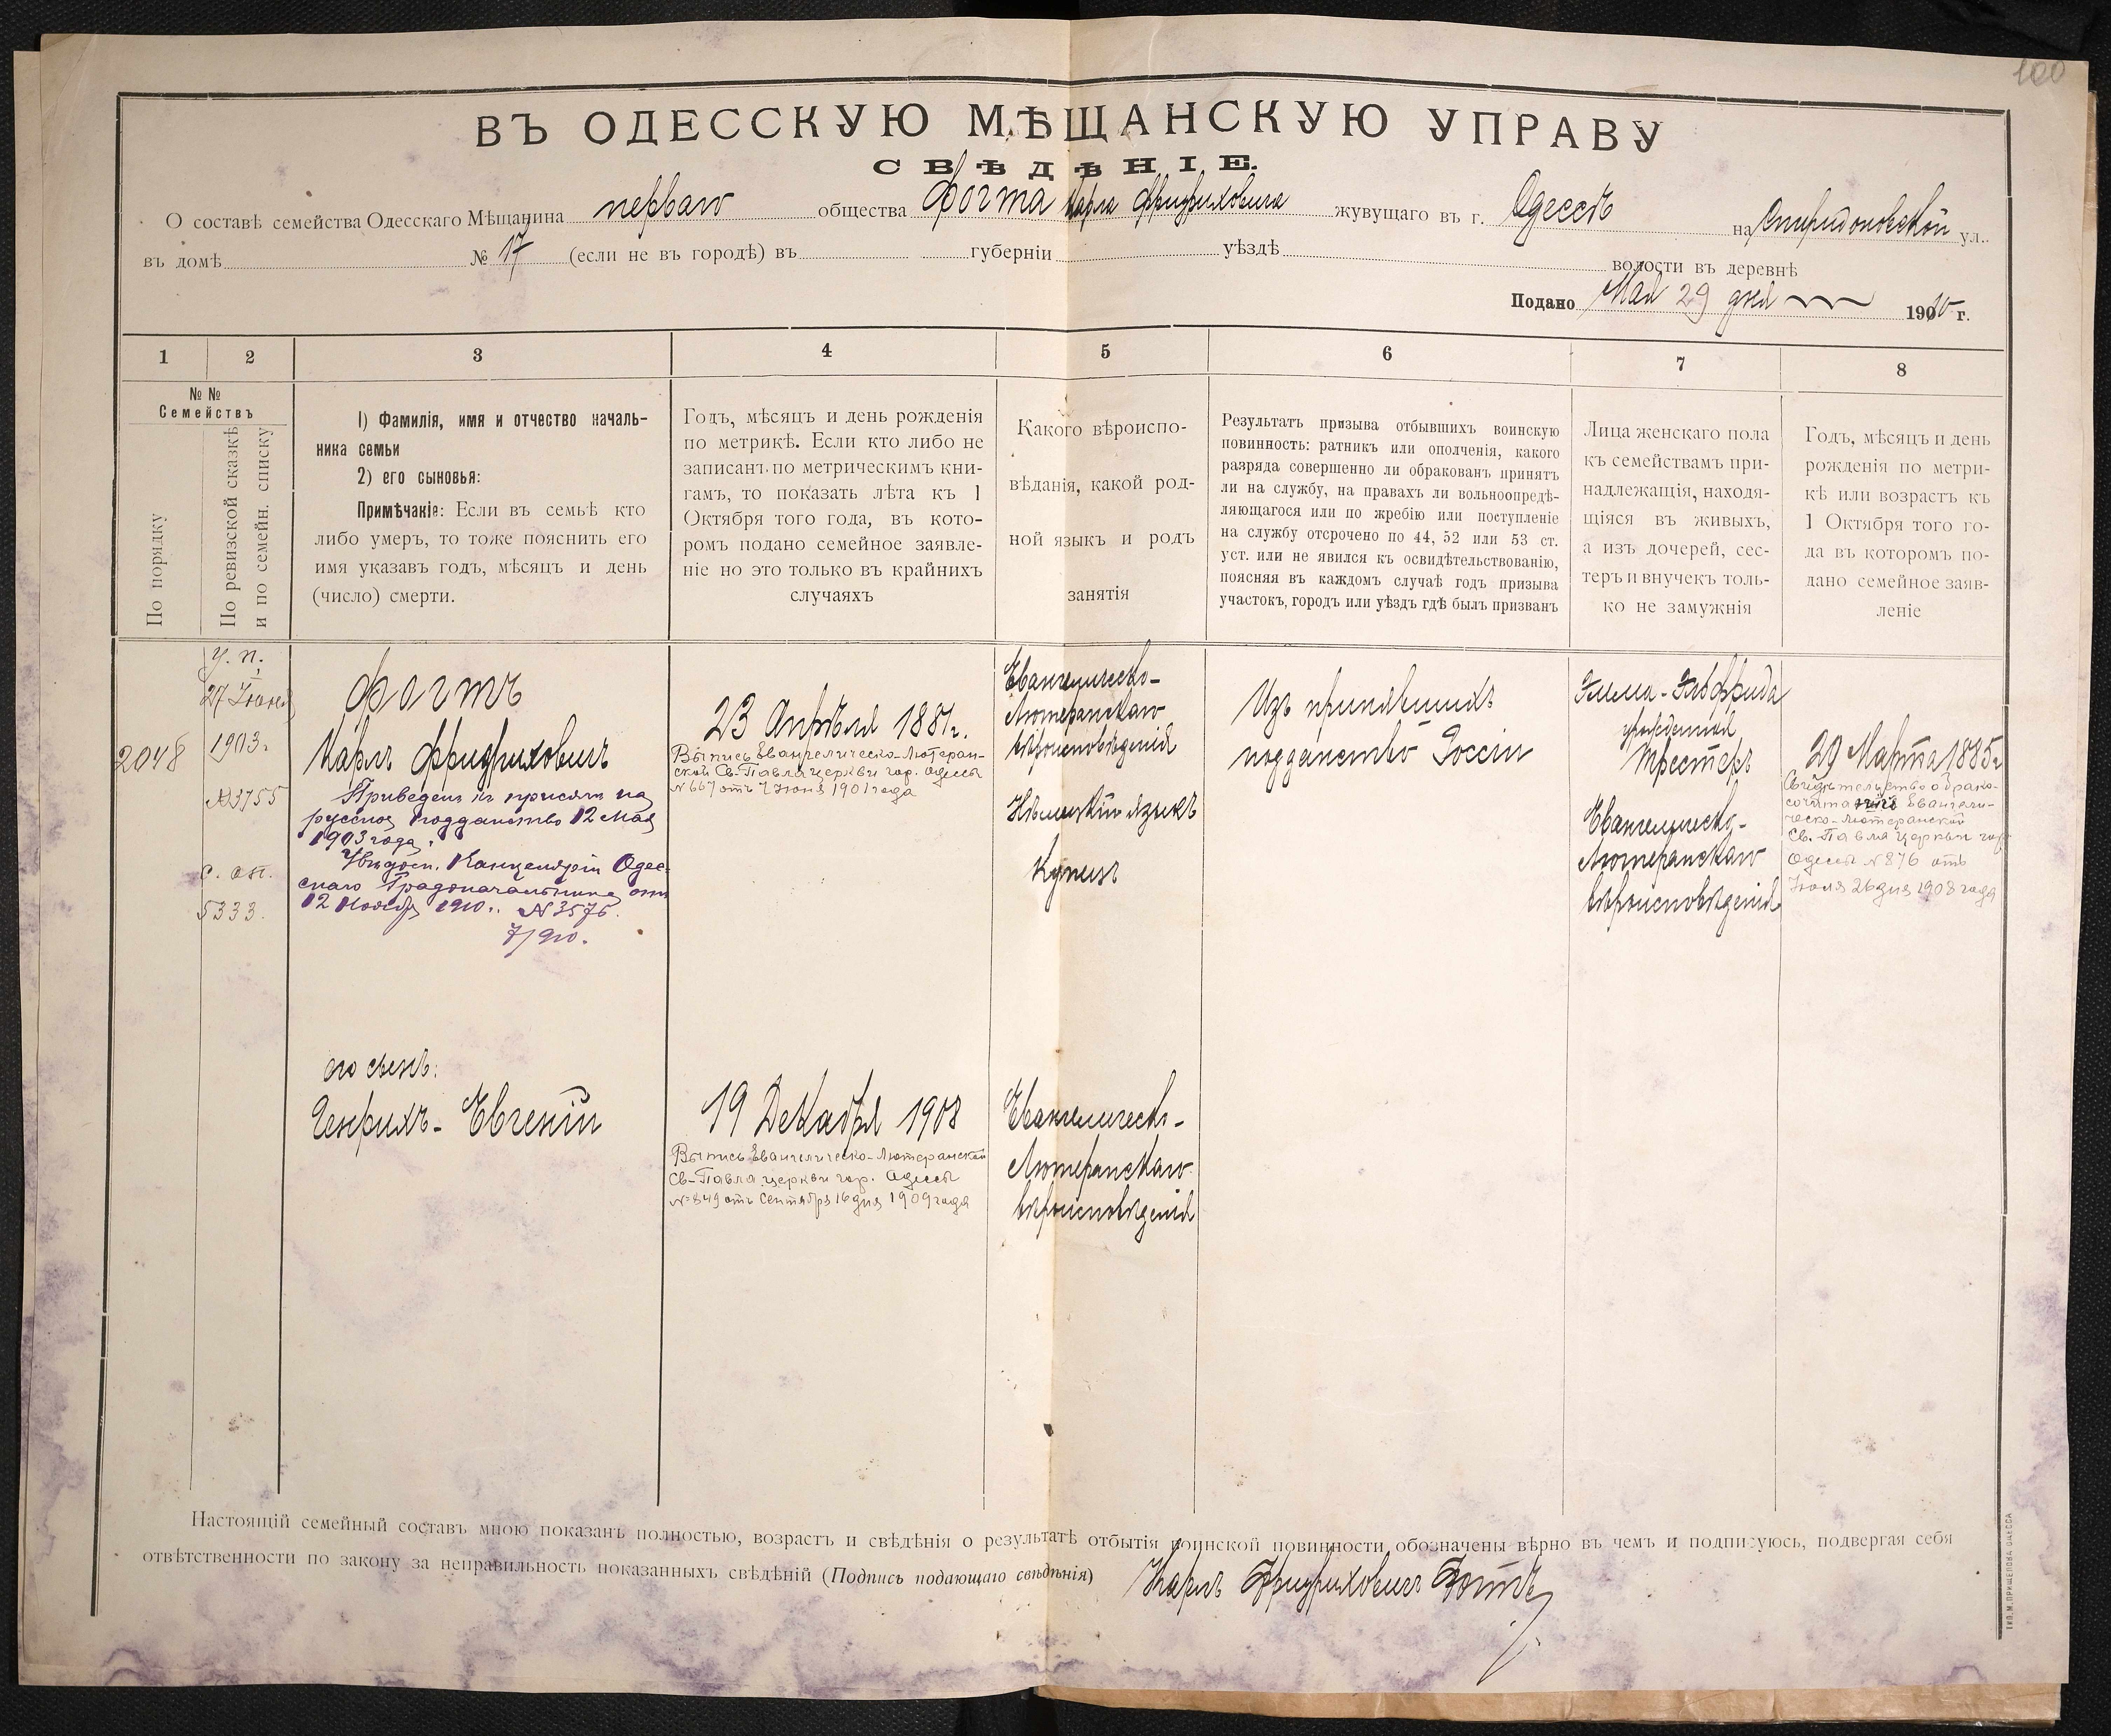 100
ВЪ ОДЕССКУЮ МѢЩАНСКУЮ УПРАВУ
СВѢДѢНІЕ.
О составѣ семейства Одесскаго Мѣщанина перваго общества Фогта Карла Фридриховича жувущаго въ г. Одессѣ на Спиридоновской ул.
въ домѣ № 17 (если не въ городѣ) въ губерніи уѣздѣ волости въ деревнѣ
Подано Мая 29 дня 1910 г.
1 2 3 4 5 6 7 8
№ №
Семействъ
По порядку
По ревизской сказкѣ
и по семейн. списку
1) Фамилія, имя и отчество началь-
ника семьи
2) его сыновья:
Примѣчаніе: Если въ семьѣ кто
либо умеръ, то тоже пояснить его
имя указавъ годъ, мѣсяцъ и день
(число) смерти.
Годъ, мѣсяцъ и день рожденія
по метрикѣ. Если кто либо не
записанъ по метрическимъ кни-
гамъ, то показать лѣта къ 1
Октября того года, въ кото-
ромъ подано семейное заявле-
ніе но это только въ крайнихъ
случаяхъ
Какого вѣроиспо-
вѣданія, какой род-
ной языкъ и родъ
занятія
Результатъ призыва отбывшихъ воинскую
повинность: ратникъ или ополченія, какого
разряда совершенно ли обракованъ принятъ
ли на службу, на правахъ ли вольноопредѣ-
ляющагося или по жребію или поступленіе
на службу отсрочено по 44, 52 или 53 ст.
уст. или не явился къ освидѣтельствованію,
поясняя въ каждомъ случаѣ годъ призыва
участокъ, городъ или уѣздъ гдѣ былъ призванъ
Лица женскаго пола
къ семействамъ при-
надлежащія, находя-
щіяся въ живыхъ,
а изъ дочерей, сес-
теръ и внучекъ толь-
ко не замужнія
Годъ, мѣсяцъ и день
рожденія по метри-
кѣ или возрастъ къ
1 Октября того го-
да въ которомъ по-
дано семейное заяв-
леніе
2048
У. п.
27 Іюня
1903 г
№3755
с. оп.
5333.
Фогтъ
Карлъ Фридриховичъ
Приведенъ къ присягѣ на
русское подданство 12 Мая
1903 года.
Увѣдом. Канцеляріи Одес-
скаго Градоначальника отъ
12 Ноября 1910 г. № 3576.
7/910.
его сынъ:
Генрихъ-Евгеній
23 Апрѣля 1881 г.
Выпись Евангелическо-Лютеран-
ской Св.-Павла церкви гор. Одессы
№ 667 отъ 7 Іюня 1901 года
19 Декабря 1908
Выпись Евангелическо-Лютеранской
Св-Павла церкви гор. Одессы
№ 849 отъ Сентября 16 дня 1909 года
Евангелическо-
Лютеранскаго
вѣроисповѣданія
Нѣмецкій языкъ
Купецъ
Евангелическо-
Лютеранскаго
вѣроисповѣданія
Изъ принявшихъ
подданство Россіи
Эмма-Эльфрида
урожденная
Трестеръ
Евангелическо-
Лютеранскаго
вѣроисповѣданія
29 Марта 1885 г
Свидѣтельство о брако-
сочетаніи Евангели-
ческо-Лютеранской
Св. Павла церкви гор
Одессы № 876 отъ
Іюля 26 дня 1908 года
Настоящій семейный составъ мною показанъ полностью, возрастъ и свѣдѣнія о результатѣ отбытія воинской повинности обозначены вѣрно въ чемъ и подписуюсь, подвергая себя
отвѣтственности по закону за неправильность показанныхъ свѣдѣній (Подпись подающаго свѣдѣнія) Карлъ Фридриховичъ Фогтъ
ТИП. М. ПРИЩЕПОВА ОДЕССА